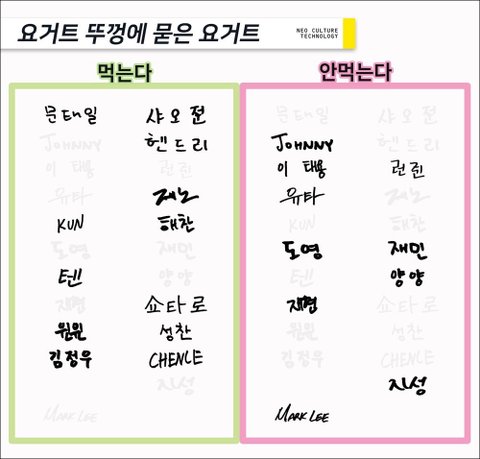 요거트 뚜껑에 묻은 요거트
NEO CULTURE
TECHNOLOGY
먹는다
문태일 샤오쥔
JOHNNY 헨드리
이태용 런쥔
유타 제노
KUN 해찬
도영 재민
텐 양양
재현 쇼타로
윈윈 성찬
김정우 CHENLE
지성
MARK LEE
안먹는다
문태일 샤오쥔
JOHNNY 헨드리
이태용 런쥔
유타 제노
KUN 해찬
도영 재민
텐 양양
재현 쇼타로
윈윈 성찬
김정우 CHENLE
지성
MARK LEE